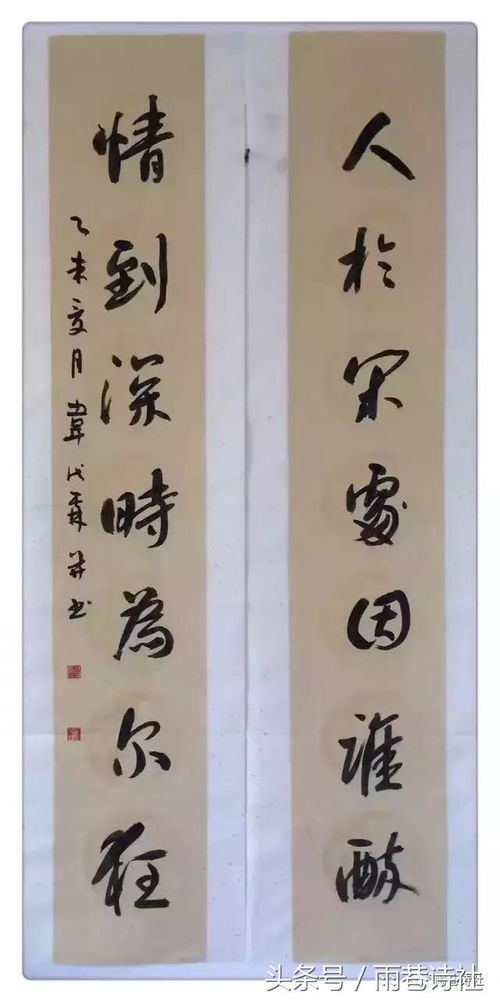 人於處因誰醉
情到深時為尔狂
乙未夏月韋代并书
头条号 / 雨巷诗社